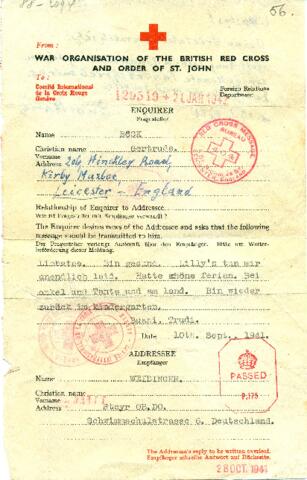 56.
From:
WAR ORGANISATION OF THE BRITISH RED CROSS
AND ORDER OF ST. JOHN
To:
Comité International
de la Croix Rouge
Genève
Foreign Relations
Department.
ENQUIRER
Fragesteller
Name BÖCK
Christian name Gertrude.
Vorname
Address 204 Hinckley Road,
Kirby Muxloe
Leicester - England
Relationship of Enquirer to Addressee.
Wie ist Fragesteller mit Empfänger verwandt?
The Enquirer desires news of the Addressee and asks that the following
message should be transmitted to him.
Der Fragesteller verlangt Auskunft über den Empfänger. Bitte um Weiter-
beförderung dieser Meldung.
Liebste. Bin gesund. Lilly's tun mir
unendlich leid. Hatte schöne ferien. Bei
onkel und Tante und am land. Bin wieder
zurück im kindergarten.
Trudi.
Date 10th. Sept., 1941.
ADDRESSEE
Empfänger
Name WEIDINGER.
Christian name
Vorname
Address Steyr OB.DO.
Schwimmschulstrasse 6, Deutschland.
PASSED
P.175
The Addressee's reply to be written overleaf.
Empfänger schreibe Antwort auf Rückseite.
28 OCT. 1941